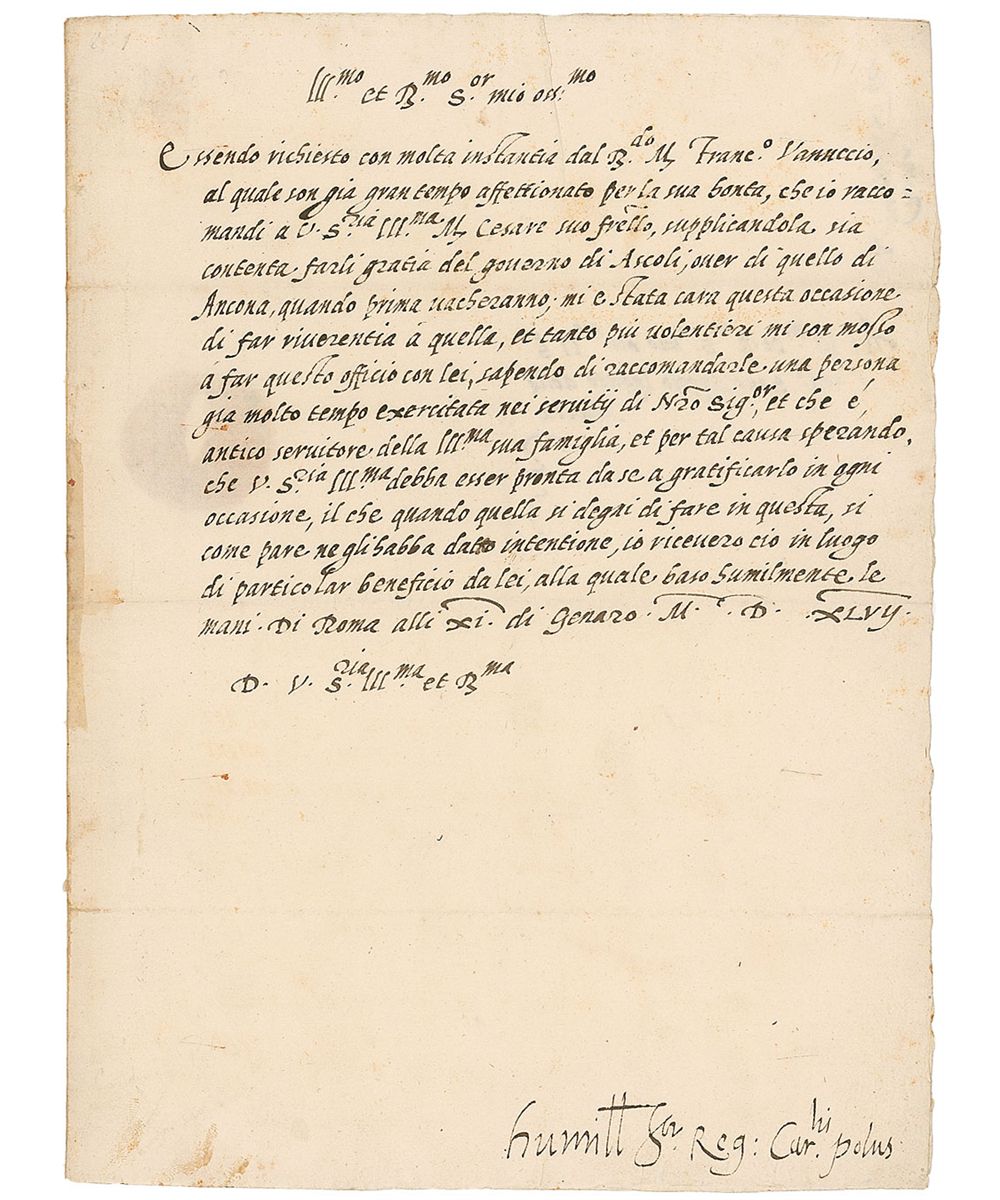 Ill.mo et R.mo S.or mio oss.mo
Essendo richiesto con molta instantia dal R.do M. Franc.o Vanuccio,
al quale son già gran tempo affettionato per la sua bonta, che io racco=
mandi a V. S.ria Ill.ma M. Cesare suo frello, supplicandola sia
contenta farli gratia del governo di Ascoli, over di quello di
Ancona, quando prima vacheranno; mi e stata cara questa occasione
di far riverentia à quella, et tanto più volentieri mi son mosso
a far questo officio con lei, sapendo di raccomandarle una persona
già molto tempo exercitata nei servitij di Nrõ Sig.or, et che é,
antico servitore della Ill.ma sua famiglia, et per tal causa sperando,
che V. S.ria Ill.ma debba esser pronta da se a gratificarlo in ogni
occasione, il che quando quella si degni di fare in questa, si
come pare ne gli habba dato intentione, io ricevero cio in luogo
di particolar beneficio da lei, alla quale baso humilmente le
mani. Di Roma alli XI. di Genaro. M. D. XLVIJ.
D. V. S.ria Ill.ma et R.ma
humill S.or Reg: Car.lis polus